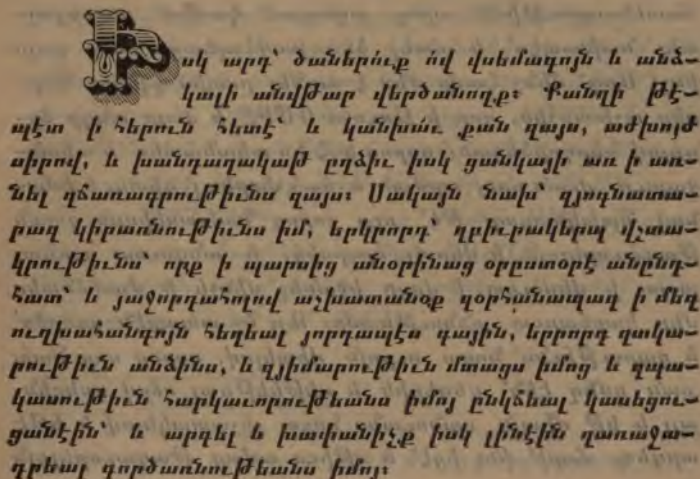 Իսկ արդ՝ ծաներո՛ւք ո՛վ վսեմագոյն և անձ֊
կալի անվթար վերծանողք։ Քանզի թէ֊
պէտ ի հերուն հետէ՝ և կանխաւ քան զայս, աժխոյժ
սիրով, և խանդաղակաթ ըղձիւ իսկ ցանկայի առ ի առ֊
նել զճառագրութիւնս զայս։ Սակայն նախ՝ զյոգնատա֊
րազ կիրառնութիւնս իմ, երկրորդ՝ զբիւրակերպ վշտա֊
կրութիւնս՝ որք ի պարսից անօրինաց օրըստօրէ անընդ֊
հատ՝ և յաջորդահոլով աշխատանօք զօրհանապազ ի մեզ
ուղխահանդոյն հեղեալ յորդապէս գային, երրորդ զտկա֊
րութիւն անձինս, և զյիմարութիւն մտացս իմոց և զպա֊
կասութիւն հարկաւորութեանս իմոյ ընկճեալ կասեցու֊
ցանէին՝ և արգել և խափանիչք իսկ լինէին զառաջա֊
դրեալ գործառնութեանս իմոյ։